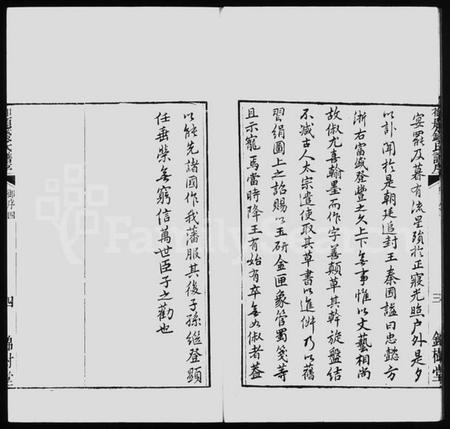 宴罷及暮有流星殞於正寢光照戶外是夕
以訃聞於是朝廷追封王秦國諡曰忠懿方
淛右富盛登豐之久上下無事惟以文藝相尚
故俶尤喜翰墨而作字善顛草其斡旋盤結
不減古人太宗遣使取其草書以進俶乃以舊
習絹圖上之詔賜以玉硯金匣象管蜀箋等
且示寵焉當時降王有始有卒無如俶者蓋
三
錦樹堂
以能先諸國作我藩服其後子孫繼登顯
任垂榮無窮信萬世臣子之勸也
四
錦樹堂
FamilySearch